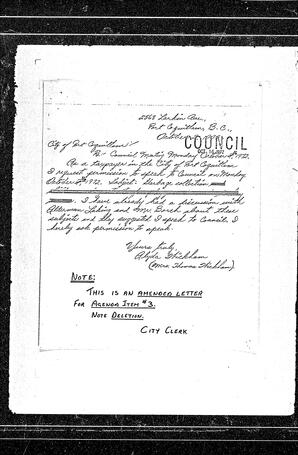 2868 Larkin Ave.,
Port Coquitlam, B.C.,
October
COUNCIL
OCT. 10 1972
City of Port Coquitlam
Re: Council Meeting Monday October 1972.
As a taxpayer in the City of Port Coquitlam
I request permission to speak to Council on Monday
October 1972. Subject: Garbage collection
I have already had a discussion with
Alderman Laking and Mr. about these
subjects and they suggested I speak to Council. I
hereby ask permission to speak.
Yours truly,
(Mrs. Thomas
NOTE:
THIS IS AN AMENDED LETTER
FOR AGENDA ITEM #3.
NOTE DELETION.
CITY CLERK